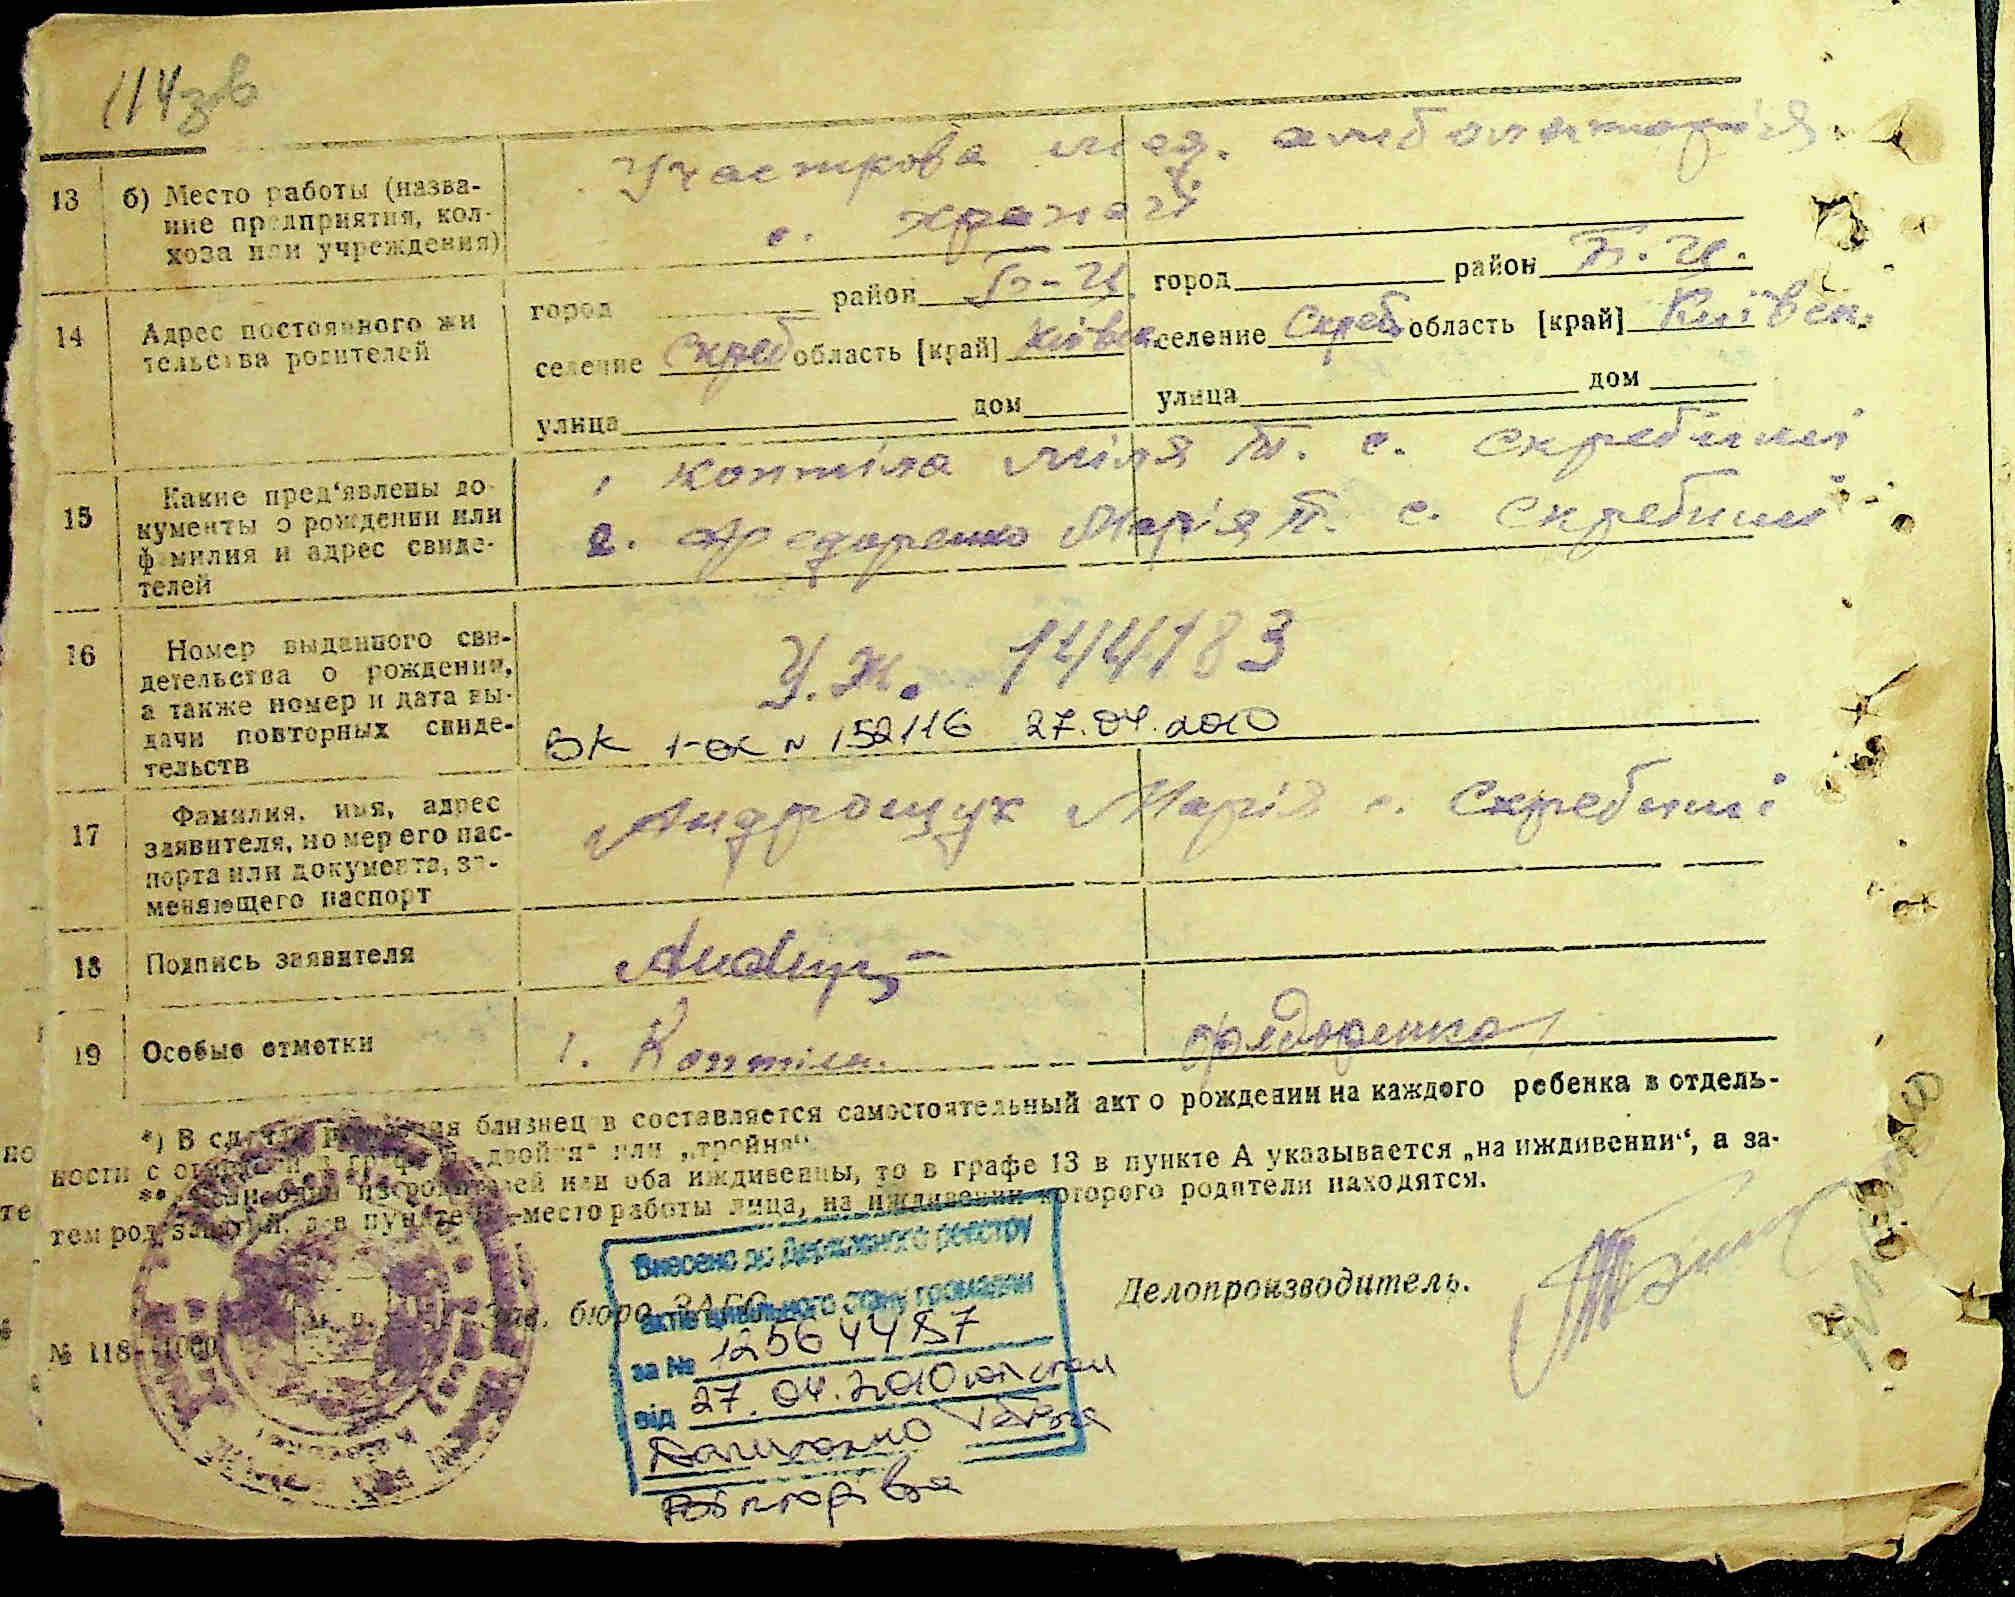 114зв
13 б) Место работы (назва-
ние предприятия, кол-
хоза или учреждения)
Участкова мед. амболаторія
с.
14 Адрес постоянного жи
тельства родителей
город район Б-Ц. город район Б. Ц.
селение Скреб область [край] Київск. селение Скреб область [край] Київск.
улица дом улица дом
15 Какие пред'явлены до-
кументы о рождении или
фамилия и адрес свиде-
телей
1 Коптіла Міля Т. с. Скребиші
2. Федоренко Марія П. с. Скребиші
16 Номер выданного сви-
детельства о рождении,
а также номер и дата вы-
дачи повторных свиде-
тельств
У.Ж. 144183
БК 1-ок № 152116 27.04.2010
17 Фамилия, имя, адрес
заявителя, номер его пас-
порта или документа, за-
меняющего паспорт
Андрощук Марія с. Скребиші
18 Подпись заявителя
19 Особые отметки
1. Коптіла. Федоренко
*) В случае рождения близнецов составляется самостоятельный акт о рождении на каждого ребенка в отдель-
ности с отметкой в графе „двойня“ или „тройня“
**) Если один из родителей или оба иждивенцы, то в графе 13 в пункте А указывается „на иждивении“, а за-
тем род занятий, а в пункте —место работы лица, на иждивении которого родители находятся.
М. п. Зав. бюро ЗАГС
Делопроизводитель.
№ 118-
Внесено до Державного реєстру
актів цивільного стану громадян
за № 12564487
від 27.04.2010
Вікторівна